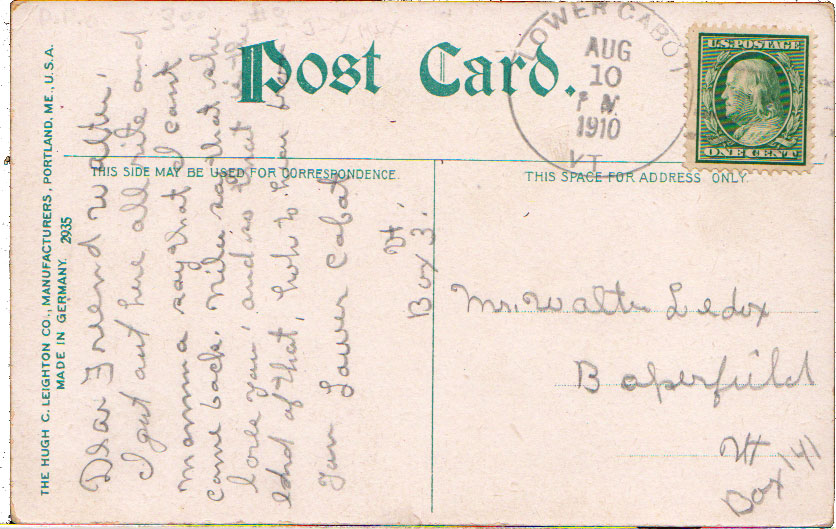 Post Card.
LOWER CABOT
AUG
10
P M
1910
VT.
U.S. POSTAGE
ONE CENT
THIS SIDE MAY BE USED FOR CORRESPONDENCE.
THIS SPACE FOR ADDRESS ONLY.
THE HUGH C. LEIGHTON CO., MANUFACTURERS, PORTLAND, ME., U.S.A.
MADE IN GERMANY. 2935
Dear Freend Walter.
I got out here all rite and
mamma say that I cant
came back. Niles say that she
loves you, and so that is the
end of that, how to hear from
you Lower Cabat
Vt.
Box 3.
Mr. Walter Ledox
Baperfield
Vt
Box 141